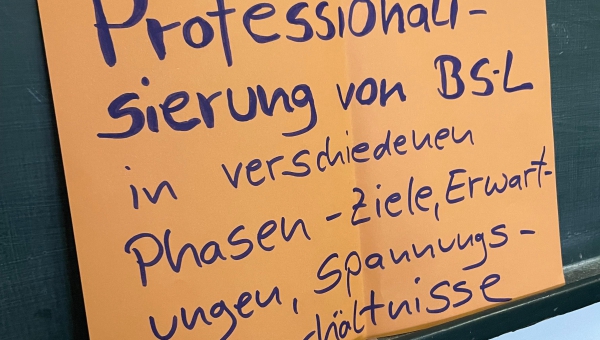 Professionali-
sierung von BS-L
in verschiedenen
Phasen - Ziele, Erwart-
ungen, Spannungs-
hältnisse